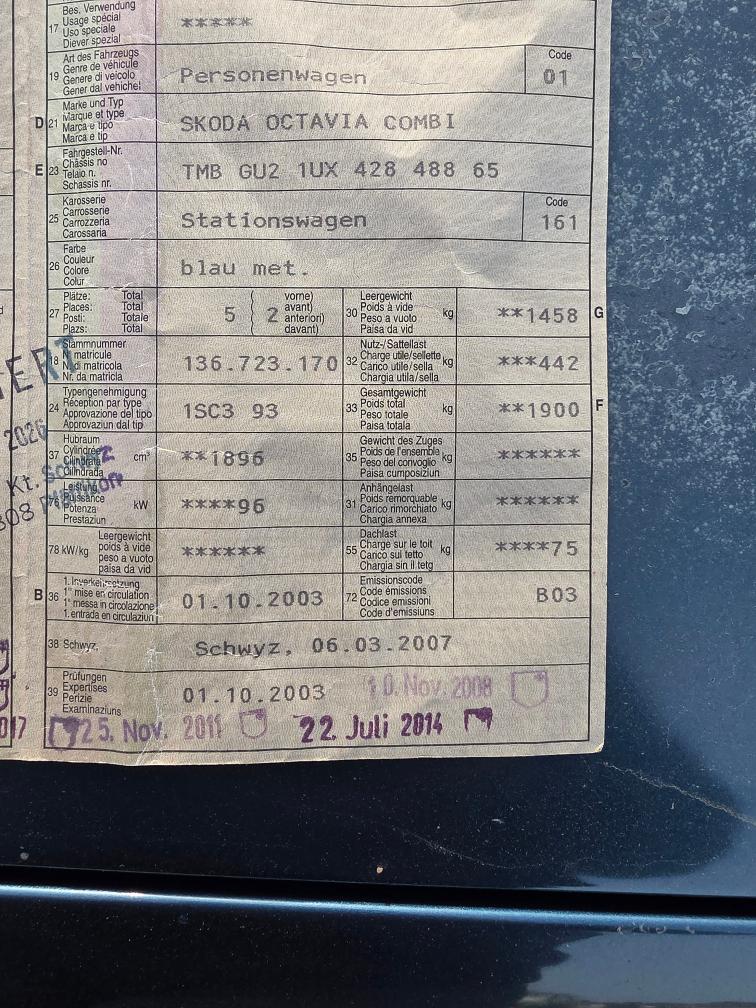 17 Bes. Verwendung
Usage spécial
Uso speciale
Diever spezial
*****
19 Art des Fahrzeugs
Genre de véhicule
Genere di veicolo
Gener dal vehichel
Personenwagen
Code
01
D 21 Marke und Typ
Marque et type
Marca e tipo
Marca e tip
SKODA OCTAVIA COMBI
E 23 Fahrgestell-Nr.
Châssis no
Telaio n.
Schassis nr.
TMB GU2 1UX 428 488 65
25 Karosserie
Carrosserie
Carrozzeria
Carossaria
Stationswagen
Code
161
26 Farbe
Couleur
Colore
Colur
blau met.
27 Plätze: Total
Places: Total
Posti: Totale
Plazs: Total
5 ( 2 vorne)
avant)
anteriori)
davant)
30 Leergewicht
Poids à vide
Peso a vuoto
Paisa da vid
kg
**1458
G
Stammnummer
matricule
matricola
Nr. da matricla
136.723.170
32 Nutz-/Sattellast
Charge utile/sellette
Carico utile/sella
Chargia utila/sella
kg
***442
24 Typengenehmigung
Réception par type
Approvazione del tipo
Approvaziun dal tip
1SC3 93
33 Gesamtgewicht
Poids total
Peso totale
Paisa totala
kg
**1900
F
37 Hubraum
Cylindrée
Cilindrata
Cilindrada
cm³
**1896
35 Gewicht des Zuges
Poids de l'ensemble
Peso del convoglio
Paisa cumposiziun
kg
******
Leistung
Puissance
Potenza
Prestaziun
kW
****96
31 Anhängelast
Poids remorquable
Carico rimorchiato
Chargia annexa
kg
******
78 kW/kg Leergewicht
poids à vide
peso a vuoto
paisa da vid
******
55 Dachlast
Charge sur le toit
Carico sul tetto
Chargia sin il tetg
kg
****75
B 36 1. Inverkehrsetzung
1re mise en circulation
1a messa in circolazione
1. entrada en circulaziun
01.10.2003
72 Emissionscode
Code émissions
Codice emissioni
Code d'emissiuns
B03
38 Schwyz.
Schwyz, 06.03.2007
39 Prüfungen
Expertises
Perizie
Examinaziuns
01.10.2003
10. Nov. 2008
25. Nov. 2011
22. Juli 2014
2026
Kt.